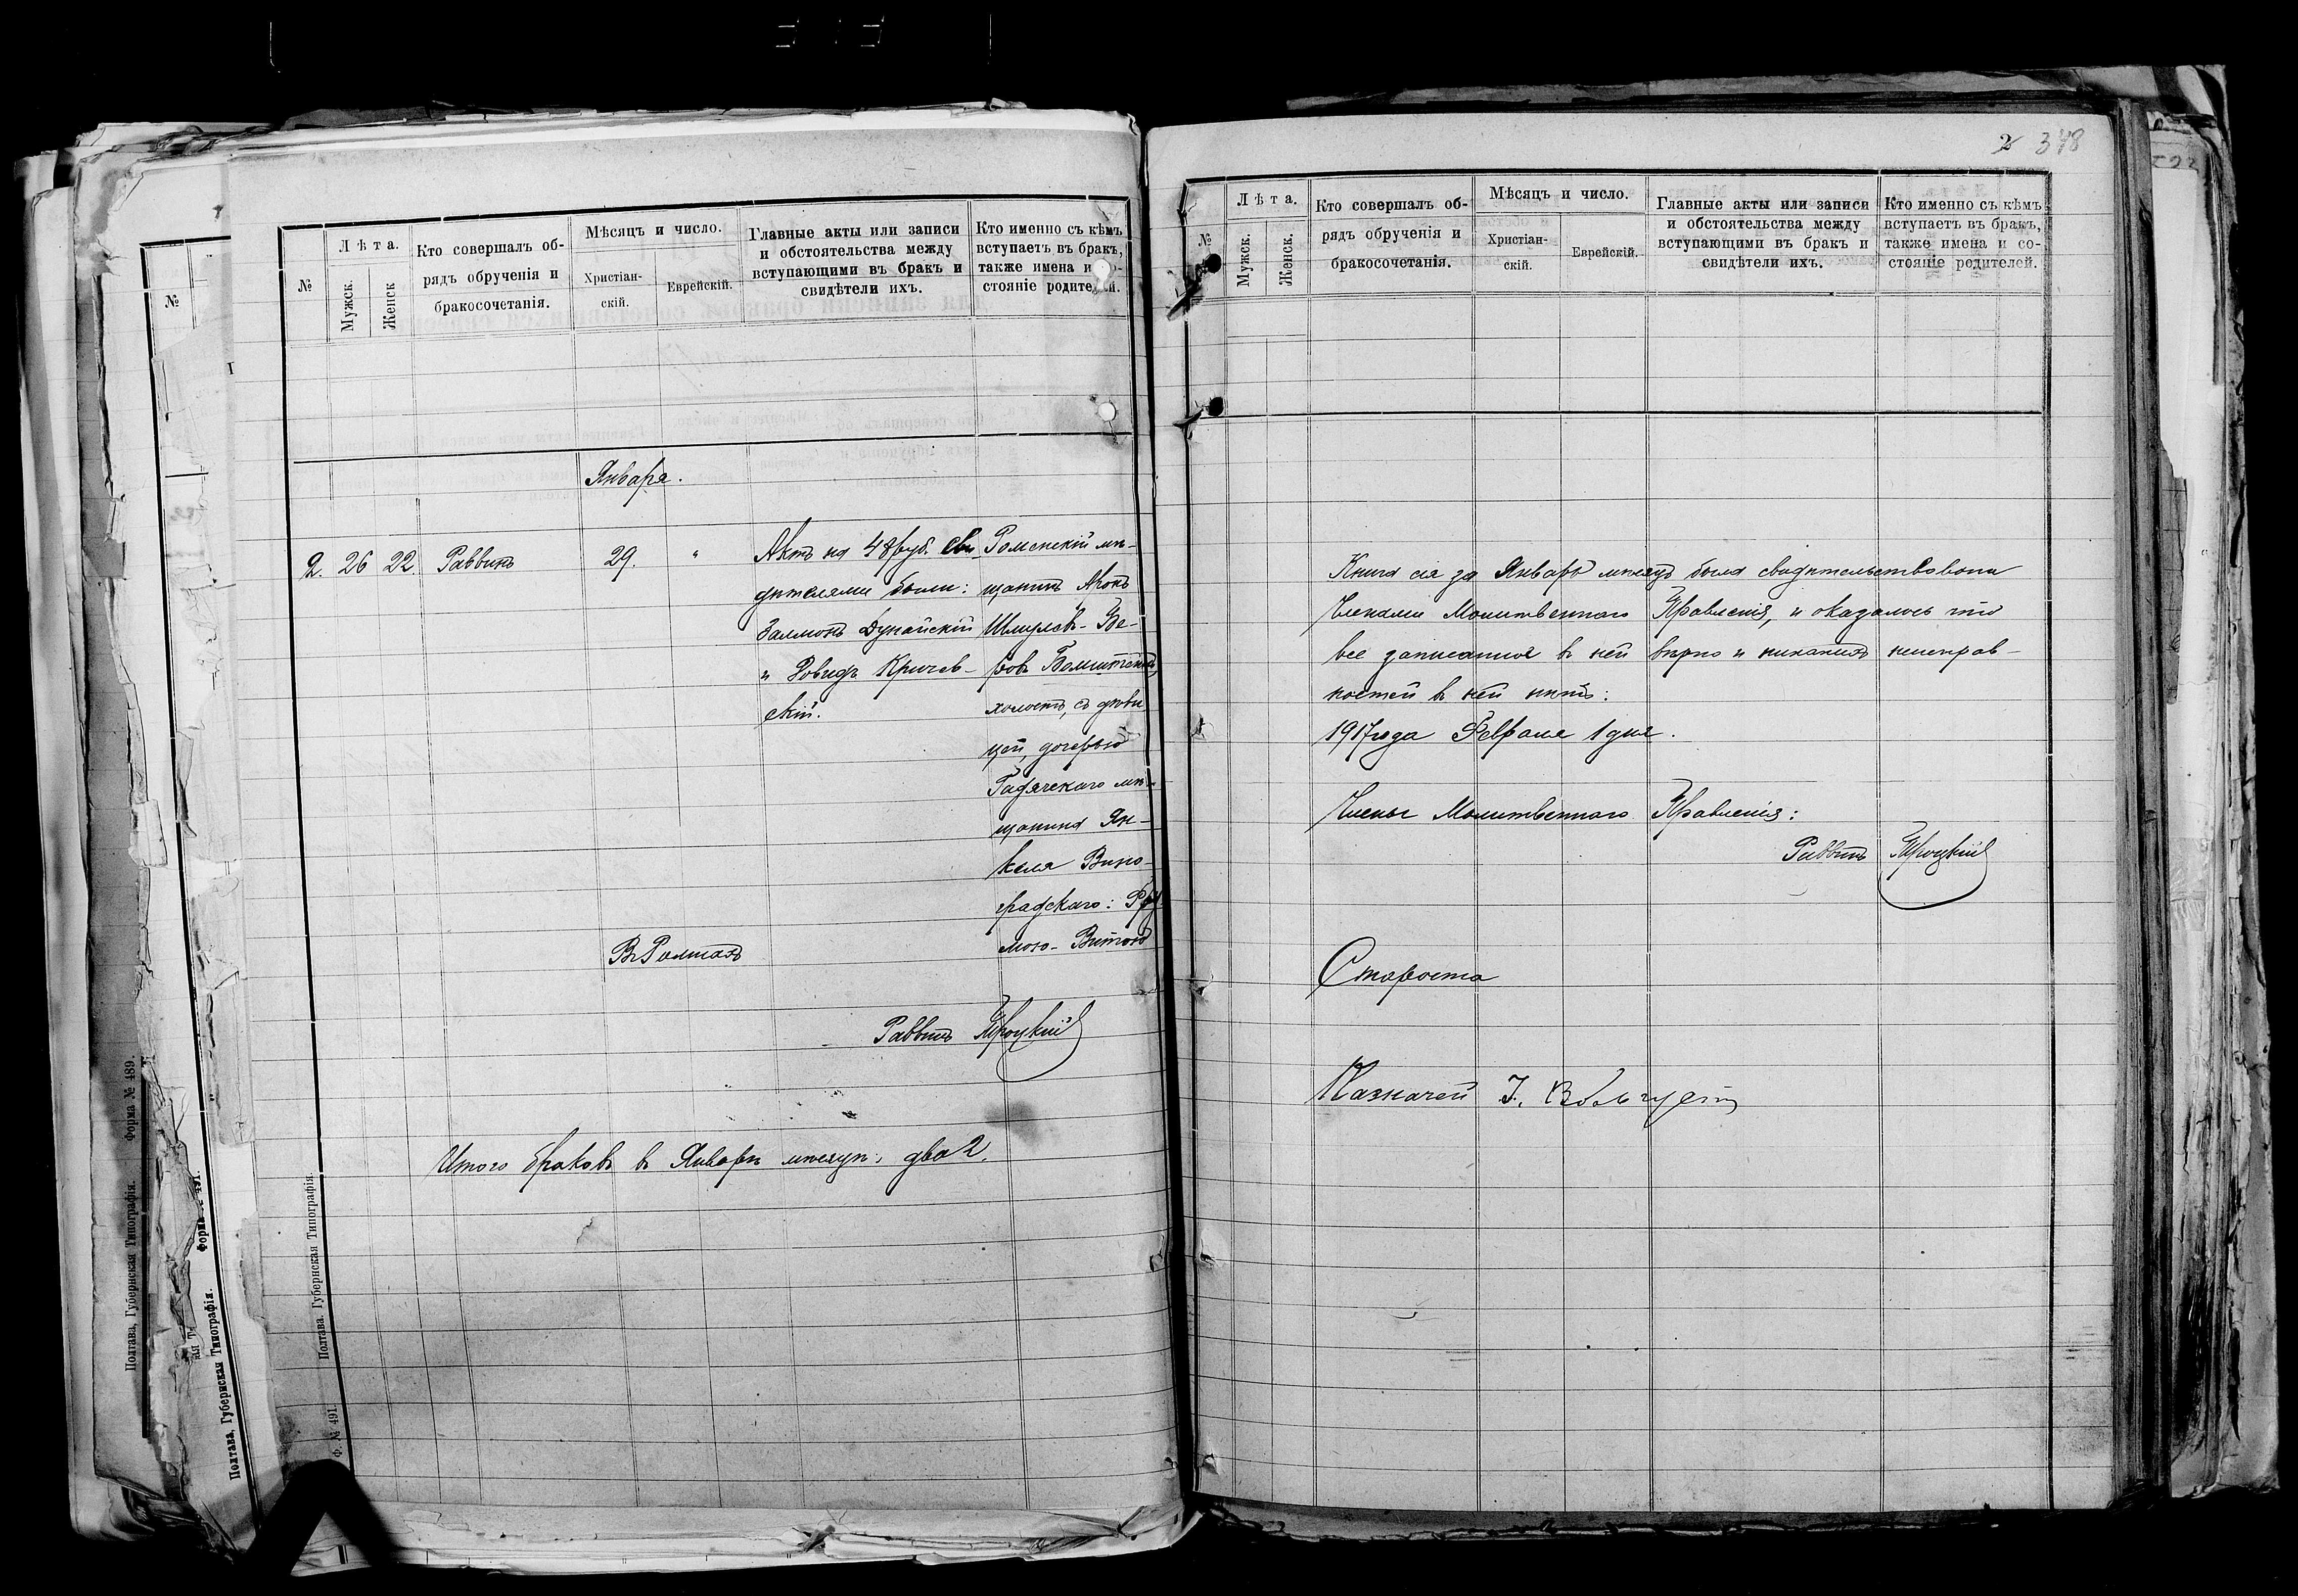 №
Лѣта.
Мужск.
Женск
Кто совершалъ об-
рядъ обрученія и
бракосочетанія.
Мѣсяцъ и число.
Христіан-
скій.
Еврейскій.
Главные акты или записи
и обстоятельства между
вступающими въ бракъ и
свидѣтели ихъ.
Кто именно съ кѣмъ
вступаетъ въ бракъ,
также имена и
стояніе родителей.
Января.
2. 26 22. Раввинъ 29. "
Актъ на 48 руб. Сви-
дѣтелями были:
Залманъ Дунайскій
и Довидъ Кричев-
скій.
Роменскій мѣ-
щанинъ Аронъ
Шмулевъ-Ве-
холостъ, съ дѣви
цей, дочерью
Гадячскаго мѣ-
щанина Ян-
келя Вино-
градскаго:
Въ Ромнахъ
Раввинъ Троцкій
Итого браковъ въ Январѣ мѣсяцѣ, два 2.
Полтава. Губернская Типографія.
Ф. № 491.
№
Форма № 489.
Полтава, Губернская Типографія.
Полтава, Губернская Типографія.
2 378
№
Лѣта.
Мужск.
Женск.
Кто совершалъ об-
рядъ обрученія и
бракосочетанія.
Мѣсяцъ и число.
Христіан-
скій.
Еврейскій.
Главные акты или записи
и обстоятельства между
вступающими въ бракъ и
свидѣтели ихъ.
Кто именно съ кѣмъ
вступаетъ въ бракъ,
также имена и со-
стояніе родителей.
Книга сія за Январь мѣсяцъ была свидѣтельствована
Членами Молитвеннаго Правленія, и оказалось что
все записанное въ ней вѣрно и никакихъ неисправ-
ностей въ ней нѣтъ:
1917 года Февраля 1 дня.
Члены Молитвеннаго Правленія:
Раввинъ Троцкій
Староста
Казначей